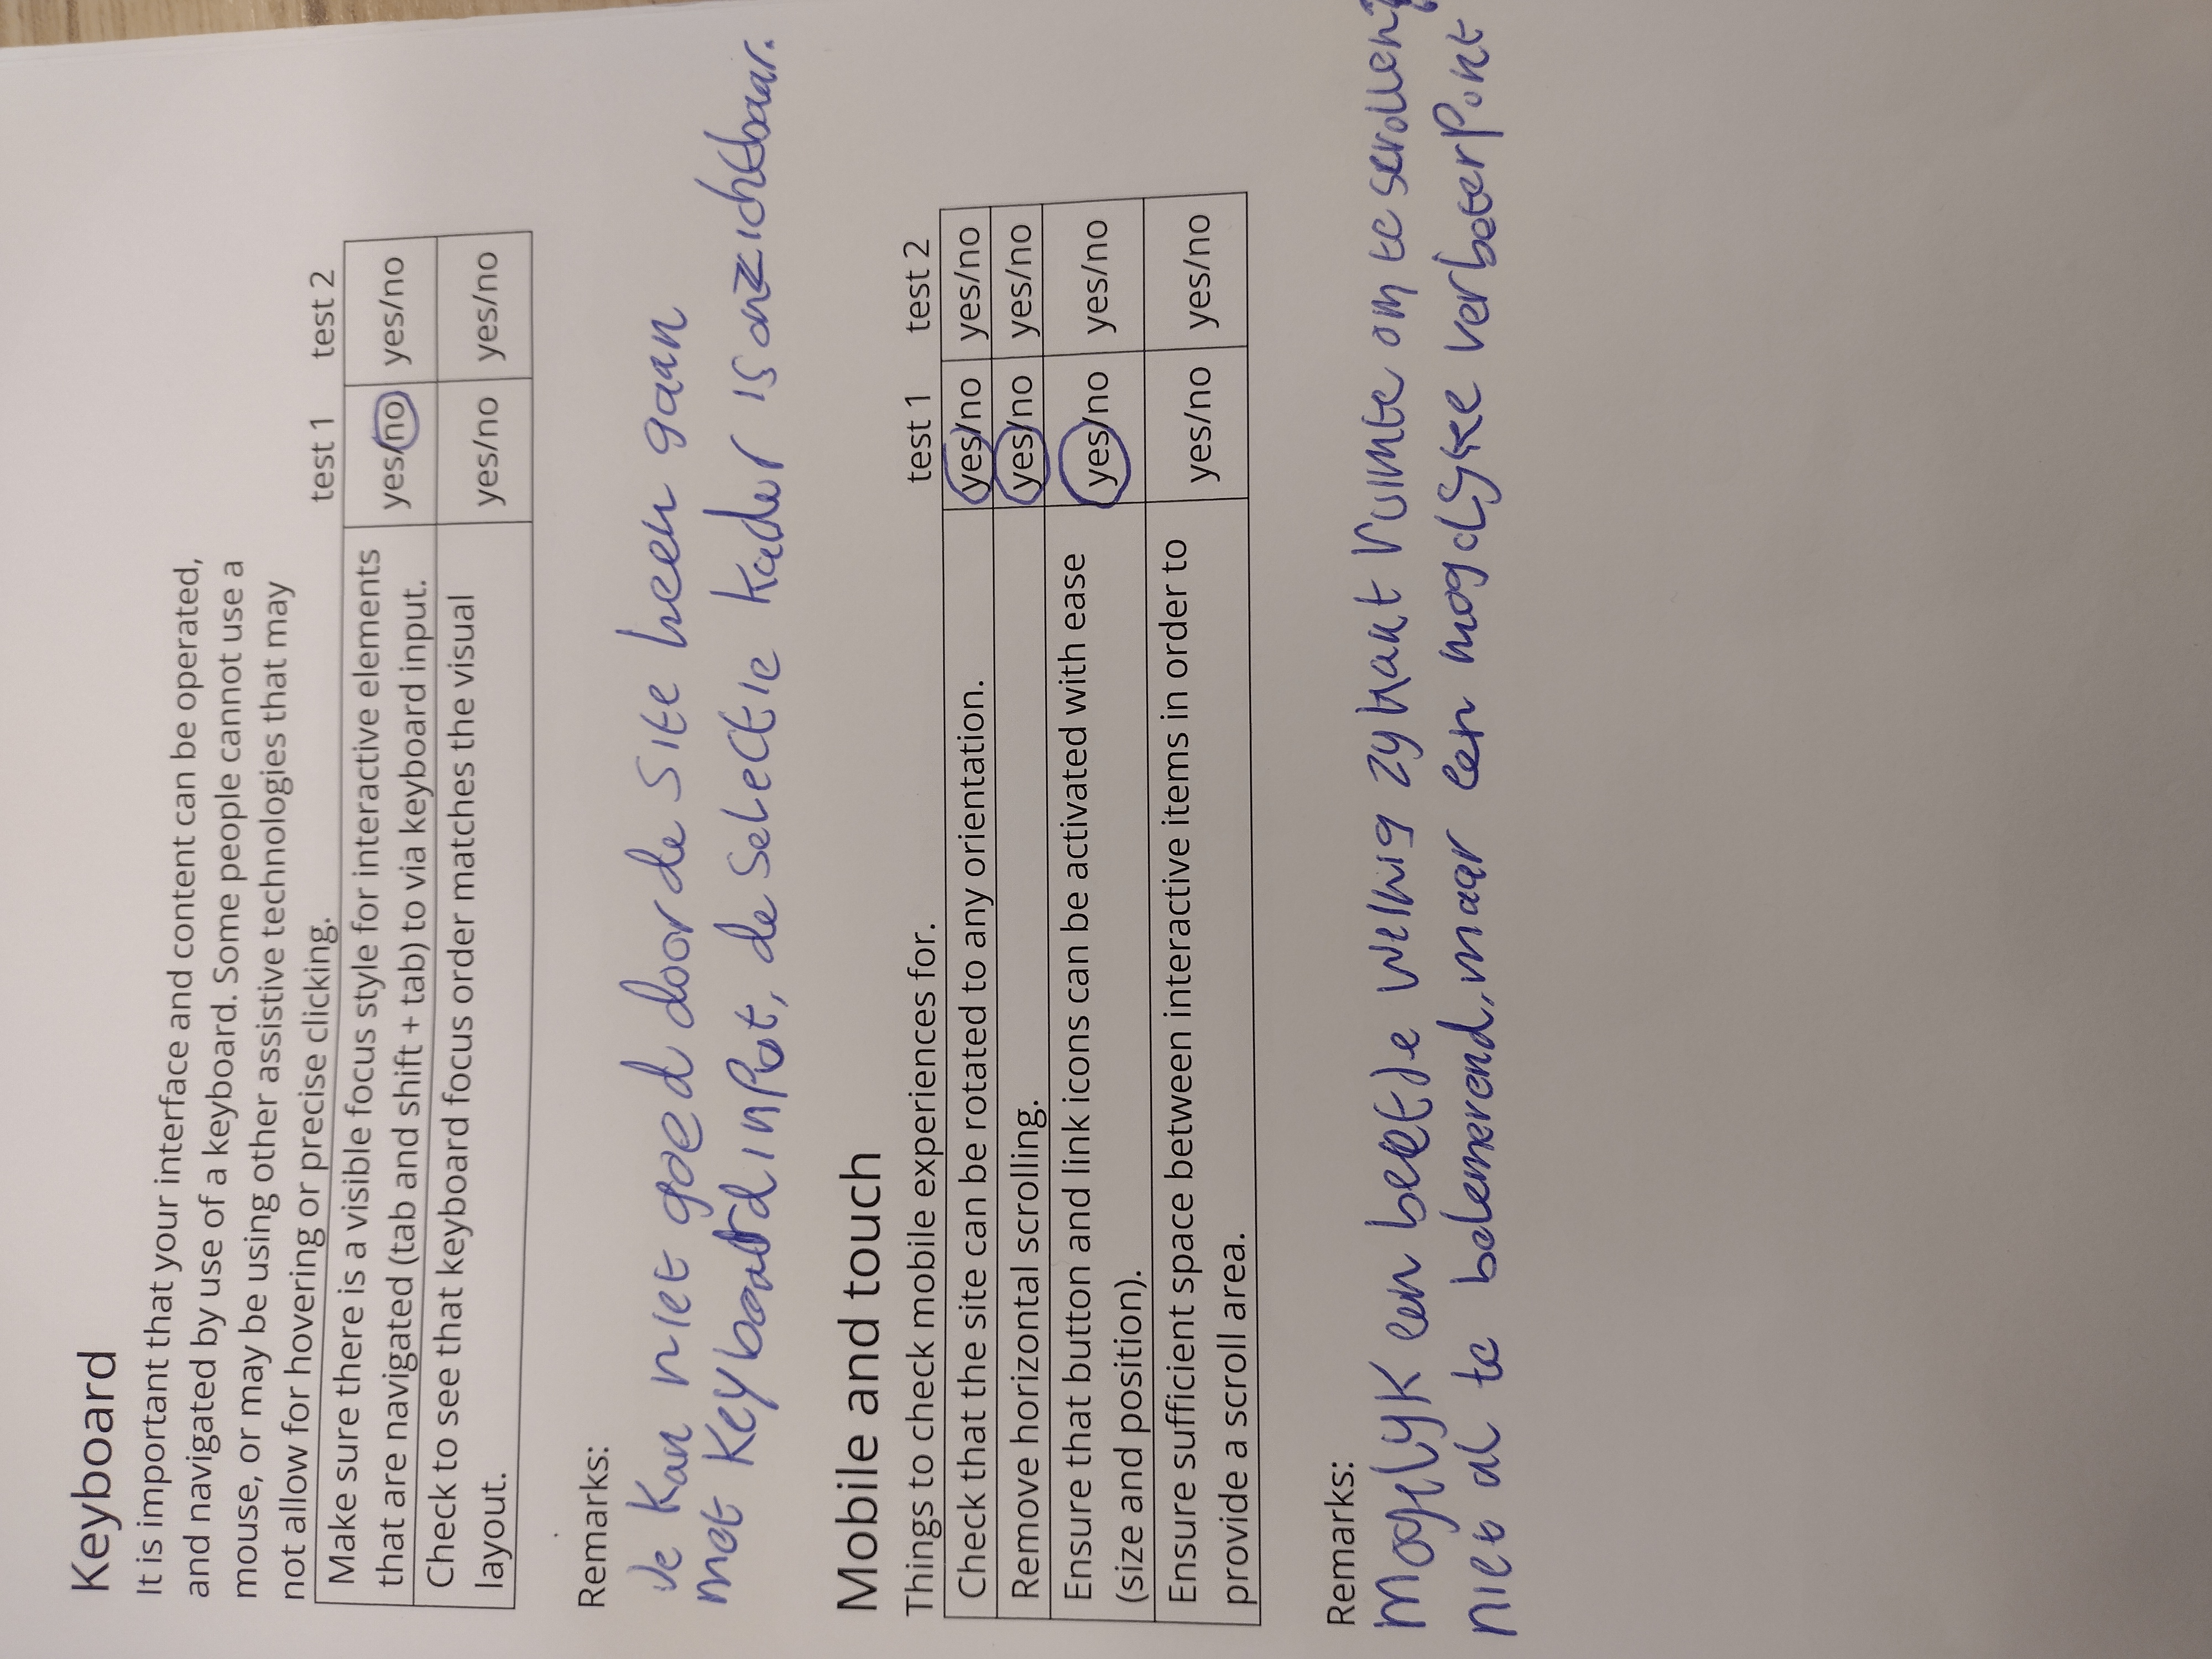 Keyboard
It is important that your interface and content can be operated,
and navigated by use of a keyboard. Some people cannot use a
mouse, or may be using other assistive technologies that may
not allow for hovering or precise clicking.
test 1 test 2
Make sure there is a visible focus style for interactive elements
that are navigated (tab and shift + tab) to via keyboard input.
yes/no yes/no
Check to see that keyboard focus order matches the visual
layout.
yes/no yes/no
Remarks:
Je kan niet goed door de site heen gaan
met keyboard input, de selectie kader is onzichtbaar.
Mobile and touch
Things to check mobile experiences for.
test 1 test 2
Check that the site can be rotated to any orientation. yes/no yes/no
Remove horizontal scrolling. yes/no yes/no
Ensure that button and link icons can be activated with ease
(size and position).
yes/no yes/no
Ensure sufficient space between interactive items in order to
provide a scroll area.
yes/no yes/no
Remarks:
Mogelyk een beetje weinig zykant ruimte om te scrollen?
niet al te belemerend, maar een mogelyke verbeterpunt